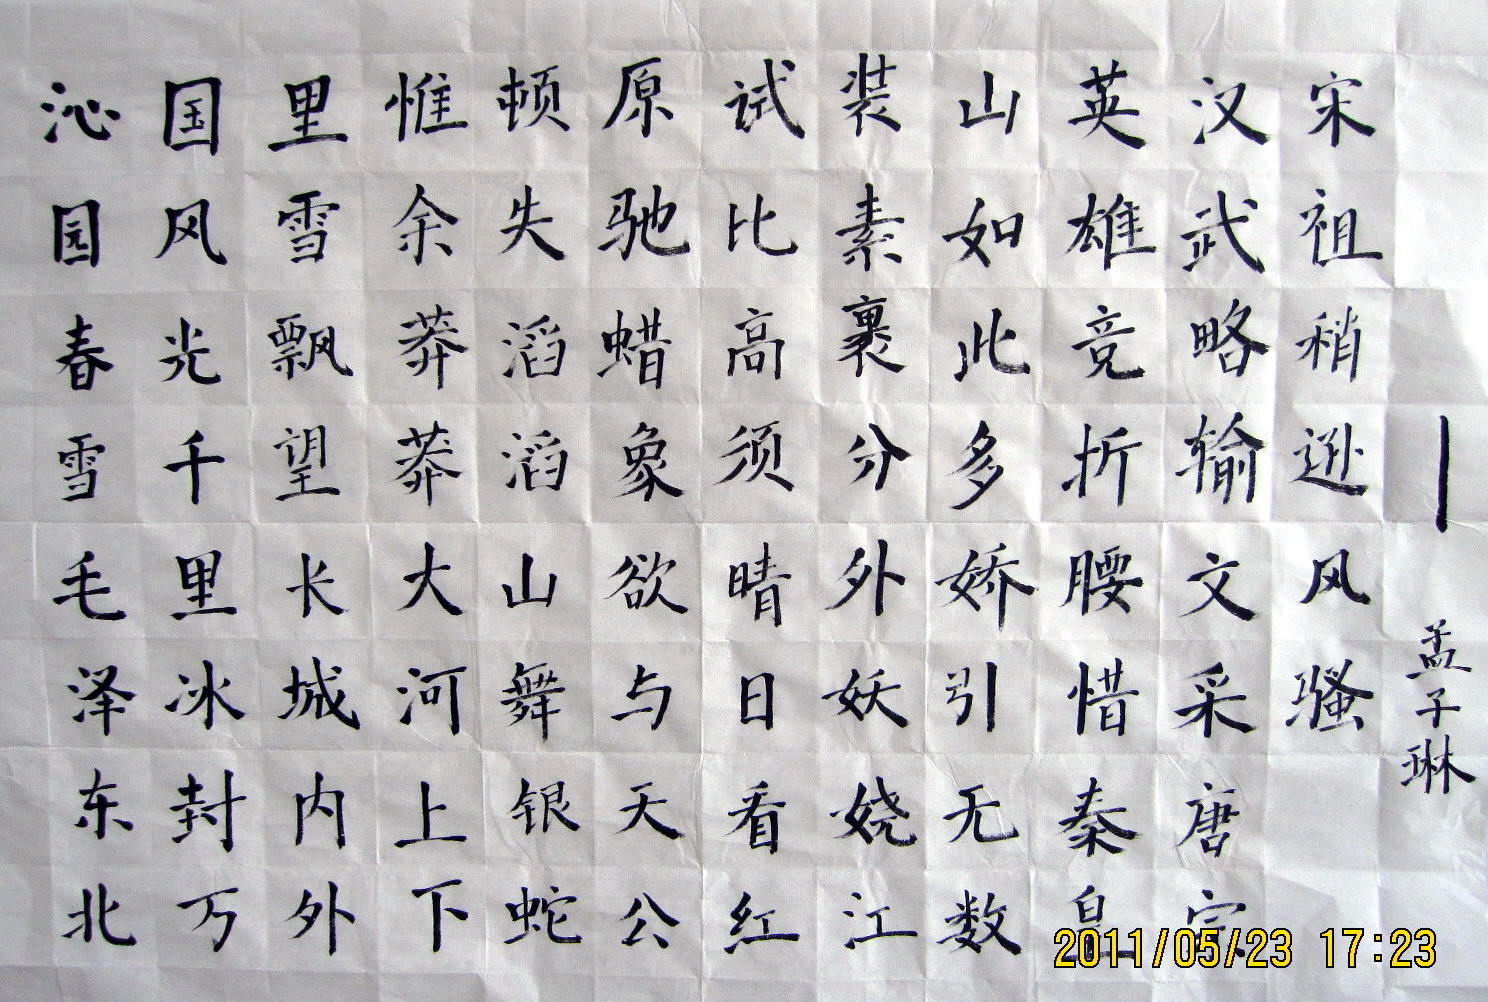 沁园春雪毛泽东北
国风光千里冰封万
里雪飘望长城内外
惟余莽莽大河上下
顿失滔滔山舞银蛇
原驰蜡象欲与天公
试比高须晴日看红
装素裹分外妖娆江
山如此多娇引无数
英雄竞折腰惜秦皇
汉武略输文采唐宗
宋祖稍逊风骚
—孟子琳
2011/05/23 17:23